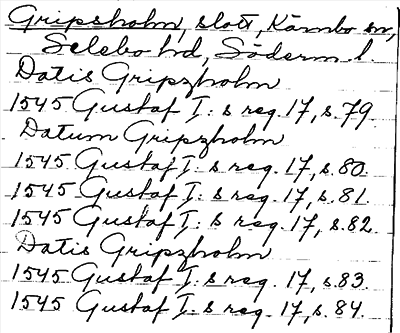 Gripsholm, slott, Kärnbo sn,
Selebo hd, Söderm. l.
Datis Gripzholm
1545 Gustaf I:s reg. 17, s. 79.
Datum Gripzholm
1545 Gustaf I:s reg. 17, s. 80.
1545 Gustaf I:s reg. 17, s. 81.
1545 Gustaf I:s reg. 17, s. 82.
Datis Gripzholm
1545 Gustaf I:s reg. 17, s. 83.
1545 Gustaf I:s reg. 17, s. 84.